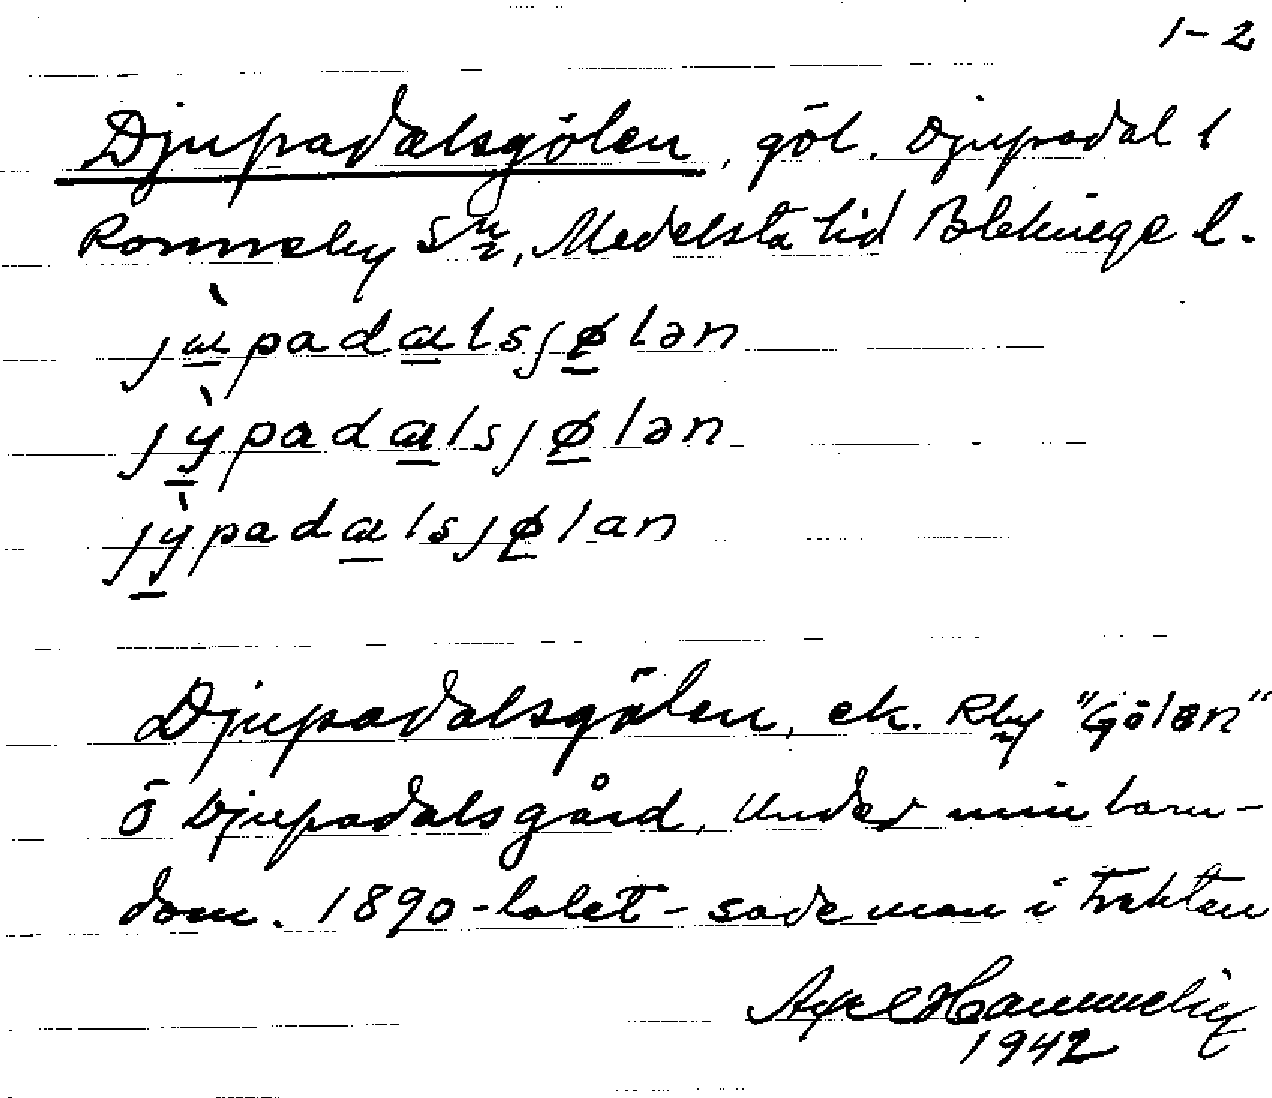 1-2
Djupadalsgölen, göl. Djupadal i
Ronneby Sn, Medelsta hd Blekinge l.
padalsjølən
jỳpadalsjølən
jỳpadalsjølan
Djupadalsgölen, ek. Rby "Gölen"
Ö Djupadalsgård. Under min barn-
dom. 1890-talet- sade man i trakten
Axel
1942